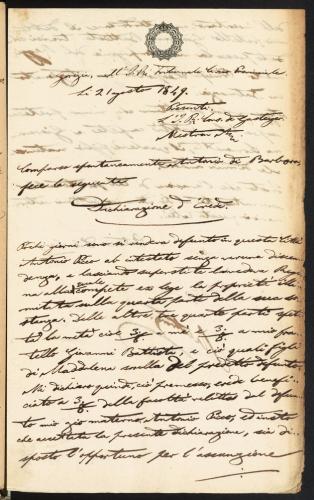 Gorizia, nell' I. R. Tribunale Civico Provinciale
Li 21 agosto 1849.
Presenti
L'I. R. Cons. de
Comparso spontaneamente Antonio de Barbaro,
fece la seguente
Dichiarazione d'Erede.
Pochi giorni sono si rendeva defunto in questa Città
Antonio Reo ab intestato senza veruna discen-
denza, e lasciando superstite la vedova Regi-
na alla quale compete ex lege la proprietà illi-
mitata sulla quarta parte della sua so-
stanza. Delle altre tre quarte parti spet-
ta la metà cioè 3/8 a me e 3/8 a mio fra-
tello Giovanni Battista, e ciò quali figli
di Maddalena sorella del predetto defunto.
Mi dichiaro quindi, ciò premesso, erede benefi-
ciato a 3/8 della facoltà relitta del defun-
to mio zio materno Antonio Reo, ed instò
che accettata la presente dichiarazione, sia di-
sposto l'opportuno per l'assunzione